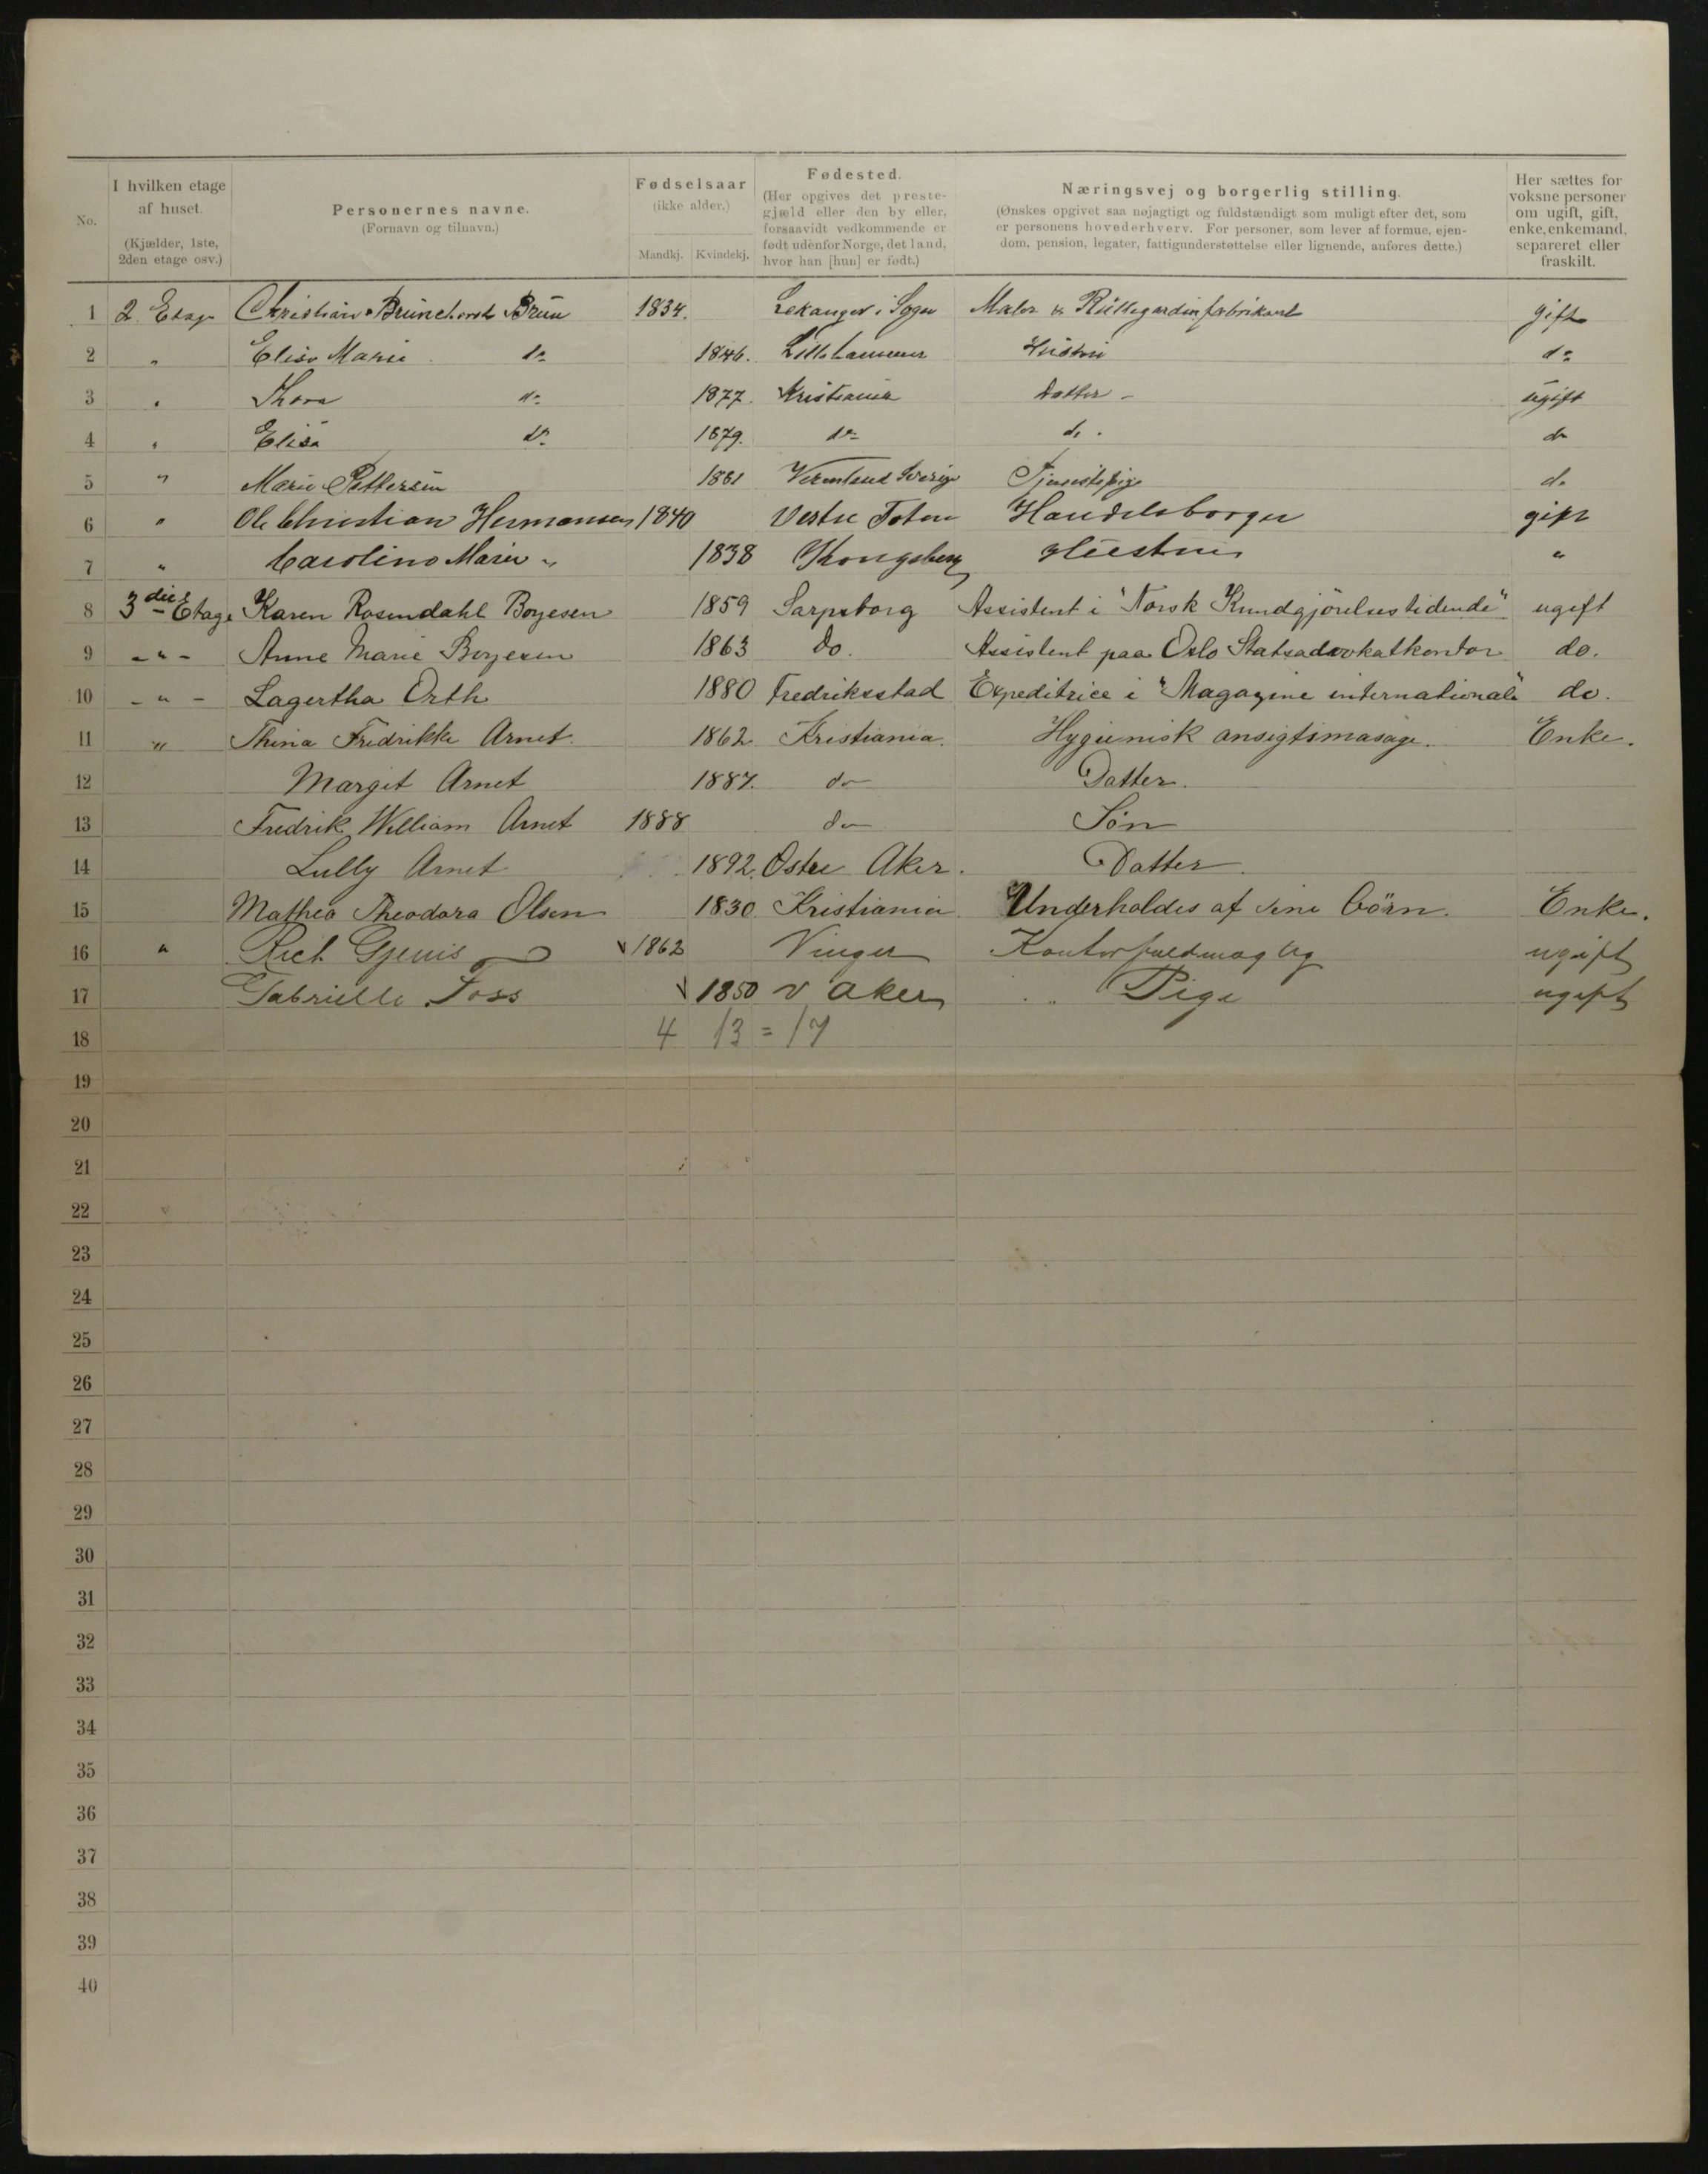 No.
I hvilken etage
af huset.
(Kjælder, 1ste,
2den etage osv.)
Personernes navne.
(Fornavn og tilnavn.)
Fødselsaar
(ikke alder.)
Mandkj. Kvindekj.
Fødested.
(Her opgives det preste-
gjæld eller den by eller,
forsaavidt vedkommende er
født udenfor Norge, det land,
hvor han [hun] er født.)
Næringsvej og borgerlig stilling.
(Ønskes opgivet saa nøjagtigt og fuldstændigt som muligt efter det, som
er personens hovederhverv. For personer, som lever af formue, ejen-
dom, pension, legater, fattigunderstøttelse eller lignende, anføres dette.)
Her sættes for
voksne personer
om ugift, gift,
enke, enkemand,
separeret eller
fraskilt.
1 2. Etage Christian Brunchorst Brun 1834. Lekanger i Sogn Maler & Rullegardinfabrikant gift
2 " Elise Marie do 1846. Lillehammer Hustru do
3 " Thora do 1877. Kristiania Datter - ugift
4 " Elisa do 1879. do do. do
5 " Marie Pettersen 1881 Vermland Sverige Tjenestepige do
6 " Ole Christian Hermansen 1840 Vestre Toten Handelsborger gift
7 " Caroline Marie " 1838 Kongsberg Hustru "
8 3die Etage Karen Rosendahl Boyesen 1859 Sarpsborg Assistent i "Norsk Kundgjörelsestidende" ugift
9 - " - Anne Marie Boyesen 1863 do. Assistent paa Oslo Statsadvokatkontor do.
10 - " - Lagertha Orth 1880 Fredriksstad Expeditrice i "Magazine international" do.
11 " Thina Fredrikke Arnet. 1862 Kristiania. Hygienisk ansigtsmasage. Enke.
12 Margit Arnet 1887. do Datter.
13 Fredrik William Arnet 1888 do Sön
14 Lully Arnet 1892. Østre Aker. Datter.
15 Mathea Theodora Olsen 1830 Kristiania Underholdes af sine börn. Enke.
16 " Rich. Gjems 1862 Vinger Kontorfuldmægtig ugift
17 Gabrielle Foss 1850 v Aker " Pige ugift
18 4 13 = 17
19
20
21
22
23
24
25
26
27
28
29
30
31
32
33
34
35
36
37
38
39
40